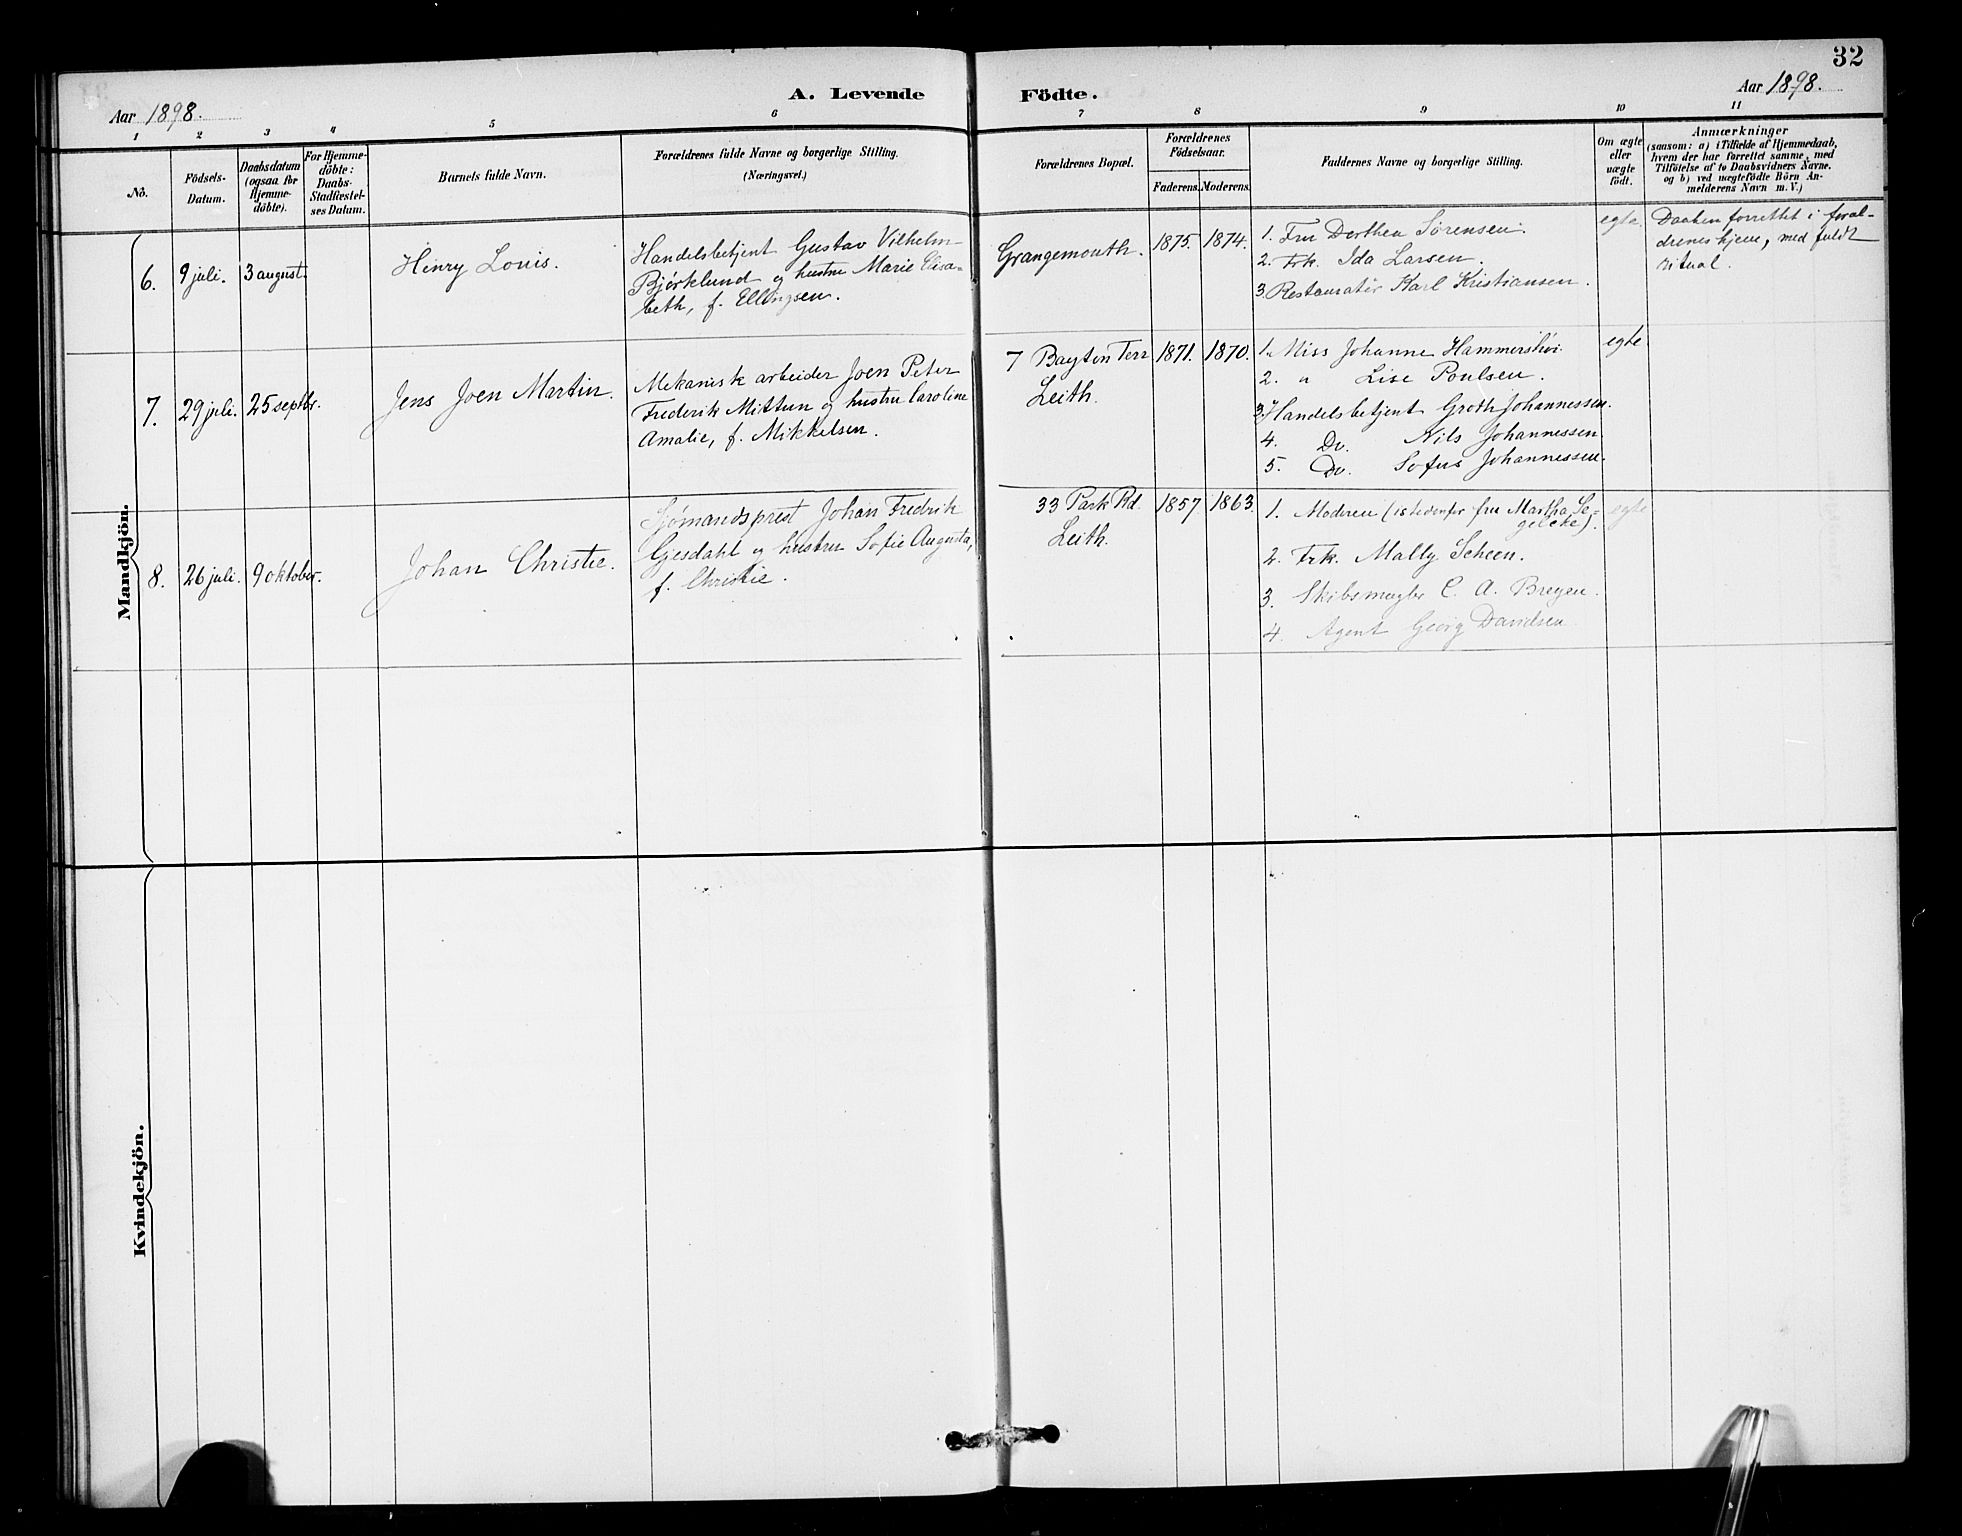 32
Aar 1898.
A. Levende Födte.
Aar 1898.
1 2 3 4 5 6 7 8 9 10 11
No.
Födsels-
Datum.
Daabsdatum
(ogsaa for
Hjemme-
döbte).
For Hjemme-
döbte:
Daabs-
Stadfæstel-
ses Datum.
Barnets fulde Navn.
Forældrenes fulde Navne og borgerlige Stilling.
(Næringsvei.)
Forældrenes Bopæl.
Forældrenes
Födselsaar.
Faderens. Moderens.
Faddernes Navne og borgerlige Stilling.
Om ægte
eller
uægte
födt.
Anmærkninger
(saasom: a) i Tilfælde af Hjemmedaab,
hvem der har forrettet samme, med
Tilföielse af to Daabsvidners Navne.
og b) ved uægtefödte Börn An-
melderens Navn m. V.)
Mandkjön.
6. 9 juli. 3 august
Henry Louis.
Handelsbetjent Gustav Vilhelm
Bjørklund og hustru Marie Elisa-
beth, f. Ellingsen.
Grangemouth.
1875 1874.
1. Fru Dorthea Sørensen.
2. Frk. Ida Larsen.
3. Restauratør Karl Kristiansen.
egte
Daaben forrettet i foræl-
drenes hjem, med fuldt
ritual.
7. 29 juli. 25 septbr.
Jens Joen Martin.
Mekanisk arbeider Joen Peter
Frederik Mittun og hustru Caroline
Amalie, f. Mikkelsen.
7 Bayton Terr
Leith.
1871. 1870.
1. Miss Johanne Hammershøi
2. " Lise Poulsen.
3. Handelsbetjent Groth Johannessen.
4. Do. Nils Johannessen
5. Do. Sofus Johannessen.
egte
8. 26 juli. 9 oktober.
Johan Christie.
Sjømandsprest Johan Fredrik
Gjesdahl og hustru Sofie Augusta,
f. Christie.
33 Park Rd.
Leith.
1857 1863
1. Moderen (istedenfor fru Martha Se-
gelcke).
2. Frk. Mally Scheen.
3. Skibsmægler C. A. Breyen.
4. Agent Georg Davidsen
egte
Kvindekjön.